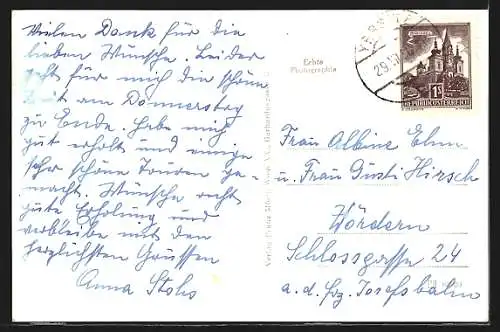 Vielen Dank für die
lieben Wünsche. Leider
geht für mich die schöne
Zeit am Donnerstag
zu Ende. Habe mich
gut erholt und einige
sehr schöne Touren ge-
macht. Wünsche recht
gute Erholung und
verbleibe mit den
herzlichsten Grüssen
Anna Stohs
Echte
Photographie
29.
1S
REPUBLIK ÖSTERREICH
Frau Albine Elm
u. Frau Gusti Hirsch
Wördern
Schlossgasse 24
a. d. Frz. Josefsbahn